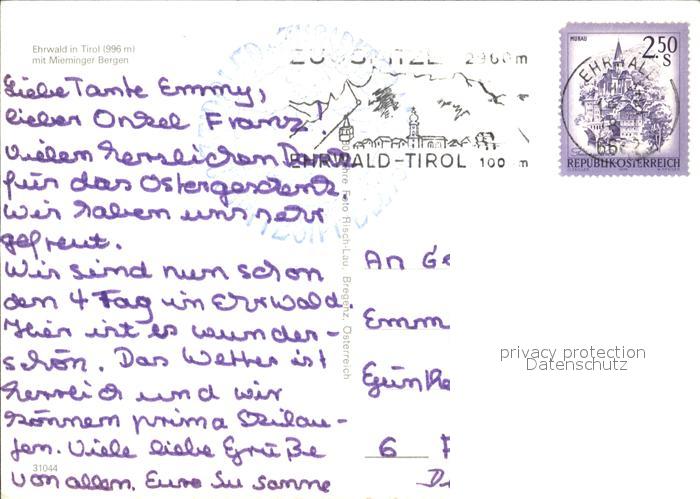 Ehrwald in Tirol (996 m)
mit Mieminger Bergen
Liebe Tante Emmy,
lieber Onkel Franz!
Vielen herzlichen Dank
für das Ostergeschenk.
Wir haben uns sehr
gefreut.
Wir sind nun schon
den 4 Tag in Ehrwald.
Hier ist es wunder-
schön. Das Wetter ist
herrlich und wir
können prima Skilau-
fen. Viele liebe Grüße
von allen. Eure Susanne
31044
ZUGSPITZE 2960 m
EHRWALD-TIROL 100 m
Foto Risch-Lau, Bregenz, Österreich
MURAU
2.50
S
EHRWALD
REPUBLIK ÖSTERREICH
An
Emm
6
privacy protection
Datenschutz